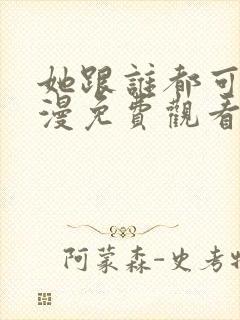 她跟誰都可
漫免費觀看
阿蒙森-史考特